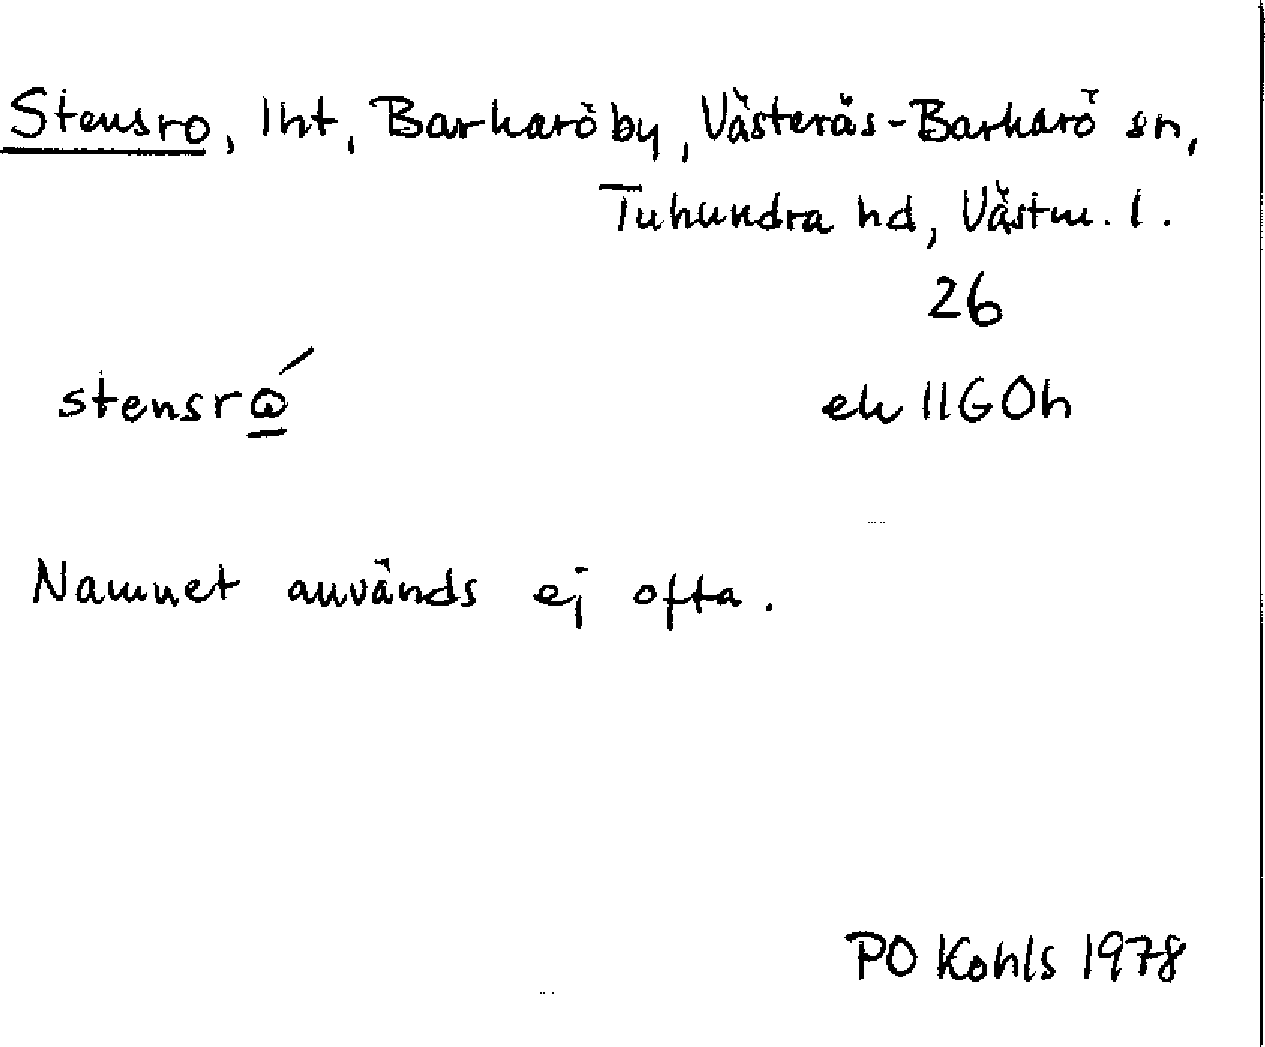 Stensro, lht, Barkaröby, Västerås-Barkarö sn,
Tuhundra hd, Västm. l.
26
stensrώ̲
ek 11G0h
Namnet används ej ofta.
PO Kohls 1978